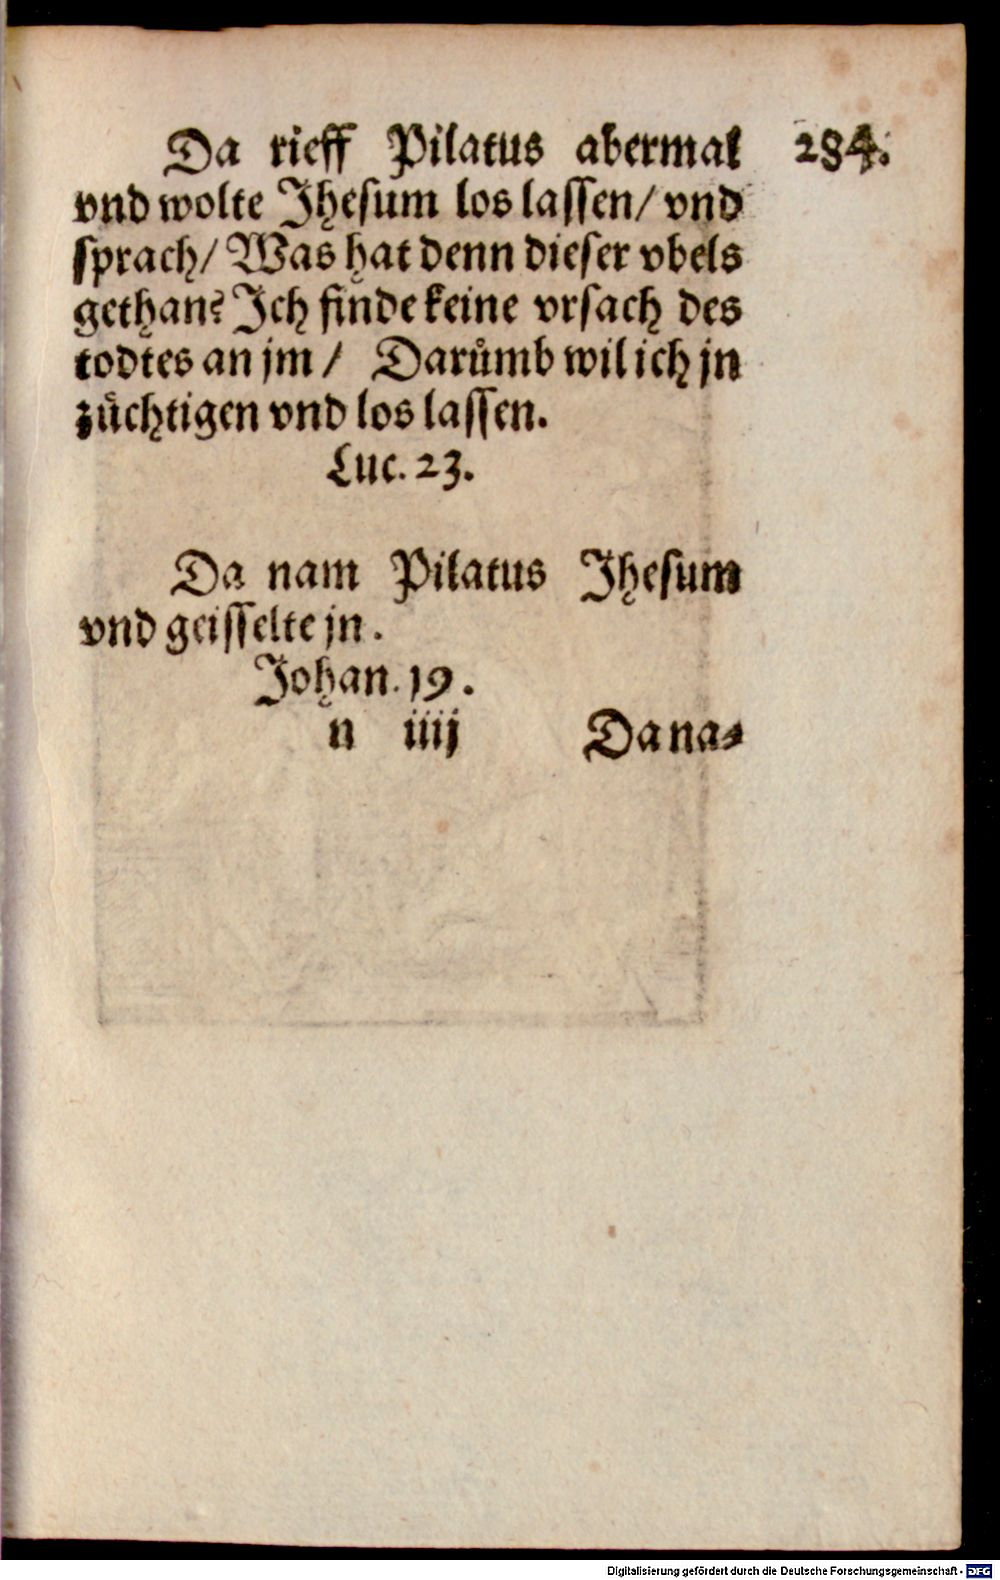 Da rieff Pilatus abermal 284.
vnd wolte Jhesum los lassen/ vnd
sprach/ Was hat denn dieser vbels
gethan? Jch finde keine vrsach des
todtes an jm / Darůmb wil ich jn
zůchtigen vnd los lassen.
Luc. 23.
Da nam Pilatus Jhesum
vnd geisselte jn.
Johan. 19.
n iiij Da na⸗
Digitalisierung gefördert durch die Deutsche Forschungsgemeinschaft - DFG